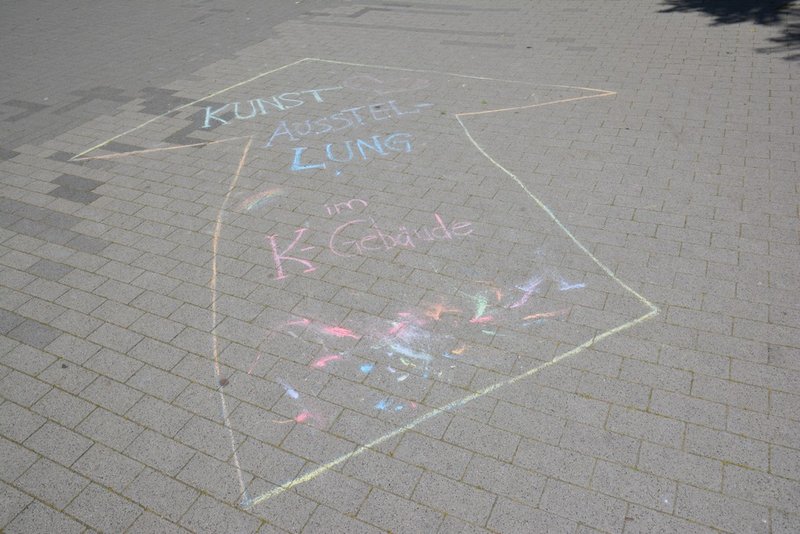 KUNST-
AUSSTEL-
LUNG
im
K-Gebäude